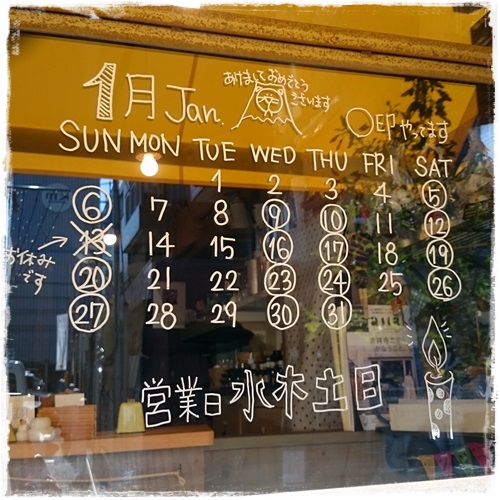 1月 Jan.
あけましておめでとう
ございます
〇印やってます
SUN MON TUE WED THU FRI SAT
1 2 3 4 5
6 7 8 9 10 11 12
13 14 15 16 17 18 19
お休み
です
20 21 22 23 24 25 26
27 28 29 30 31
営業日 水木土日